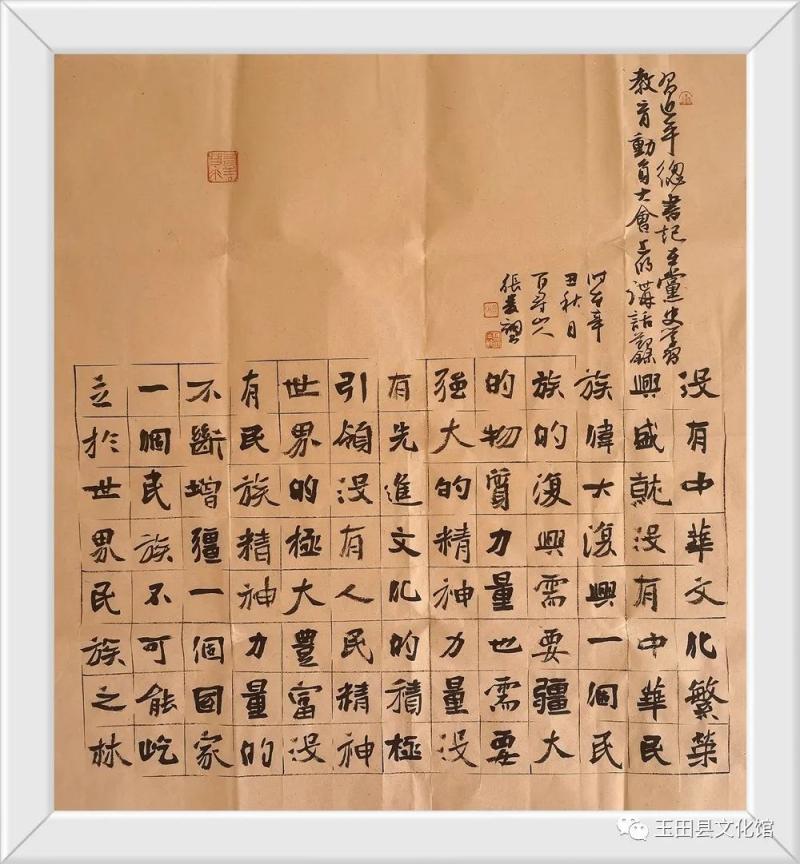 沒有中華文化繁榮
興盛就沒有中華民
族偉大復興一個民
族的復興需要疆大
的物質力量也需要
强大的精神力量沒
有先進文化的積極
引領沒有人民精神
世界的極大豐富沒
有民族精神力量的
不斷增疆一個國家
一個民族不可能屹
立於世界民族之林
習近平總書記在黨史學習
教育動員大會上的講話
時在辛
丑秋日
山人
張
玉田县文化馆